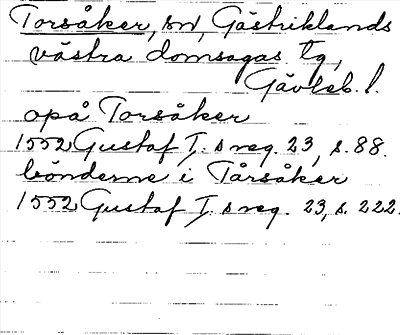 Torsåker, sn, Gästriklands
västra domsagas tg,
Gävleb. l.
opå Torsåker
1552 Gustaf I:s reg. 23, s. 88.
bönderne i Tårsåker
1552 Gustaf I:s reg. 23, s. 222.